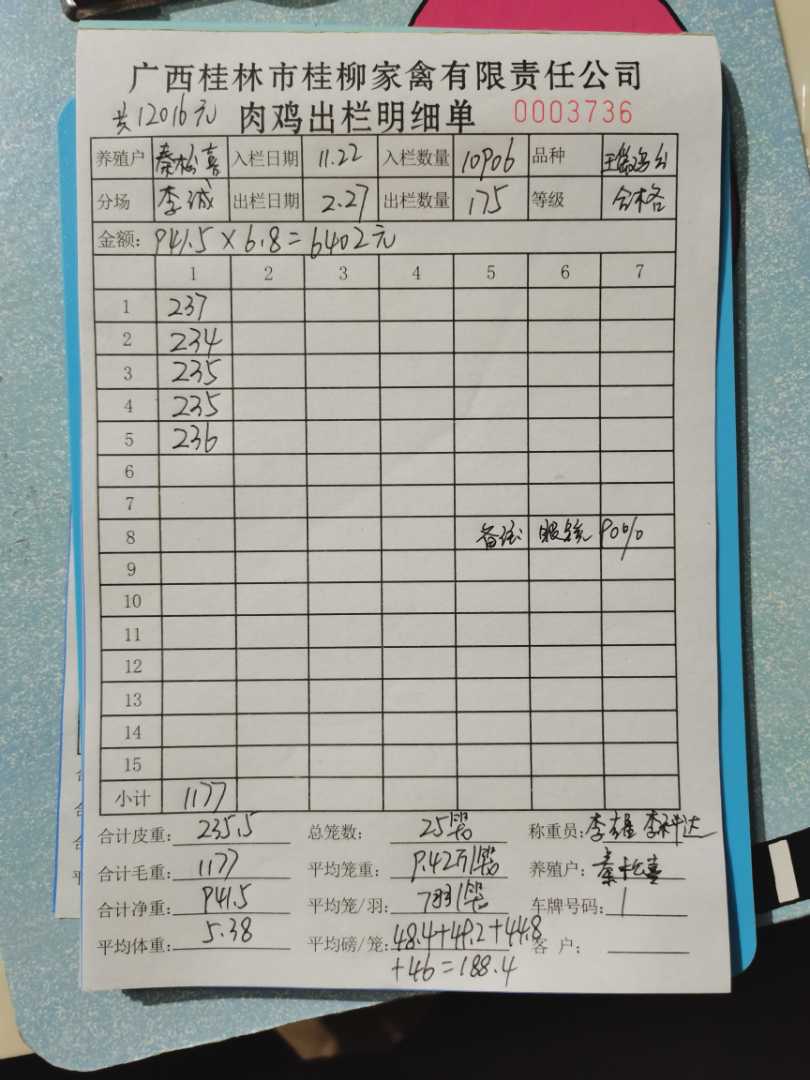 广西桂林市桂柳家禽有限责任公司
共12016元 肉鸡出栏明细单 0003736
养殖户 秦松喜 入栏日期 11.22 入栏数量 10906 品种
分场 李诚 出栏日期 2.27 出栏数量 175 等级 合格
金额: 941.5×6.8=6402元
1 2 3 4 5 6 7
1 237
2 234
3 235
4 235
5 236
6
7
8 备注 90%
9
10
11
12
13
14
15
小计 1177
合计皮重: 235.5 总笼数: 25 称重员: 李
合计毛重: 1177 平均笼重: 9.42 养殖户: 秦松喜
合计净重: 941.5 平均笼/羽: 7 车牌号码:
平均体重: 5.38 平均磅/笼: 48.4+49.2+44.8 客户:
+46=188.4